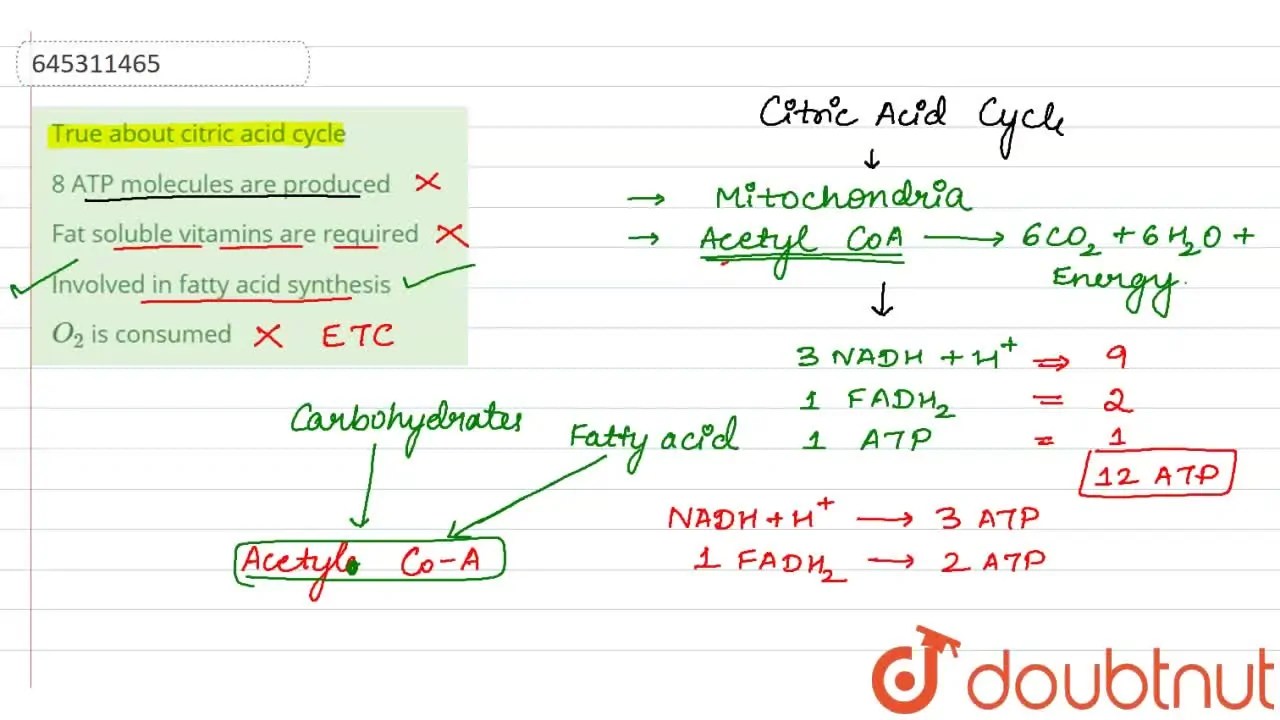 645311465
True about citric acid cycle
8 ATP molecules are produced ×
Fat soluble vitamins are required ×
✓ Involved in fatty acid synthesis ✓
O₂ is consumed × ETC
Citric Acid Cycle
↓
→ Mitochondria
→ Acetyl CoA → 6CO₂ + 6H₂O +
Energy
↓
3 NADH + H⁺ ⇒ 9
1 FADH₂ = 2
1 ATP = 1
12 ATP
NADH + H⁺ → 3 ATP
1 FADH₂ → 2 ATP
Carbohydrates
Fatty acid
Acetyl Co-A
doubtnut